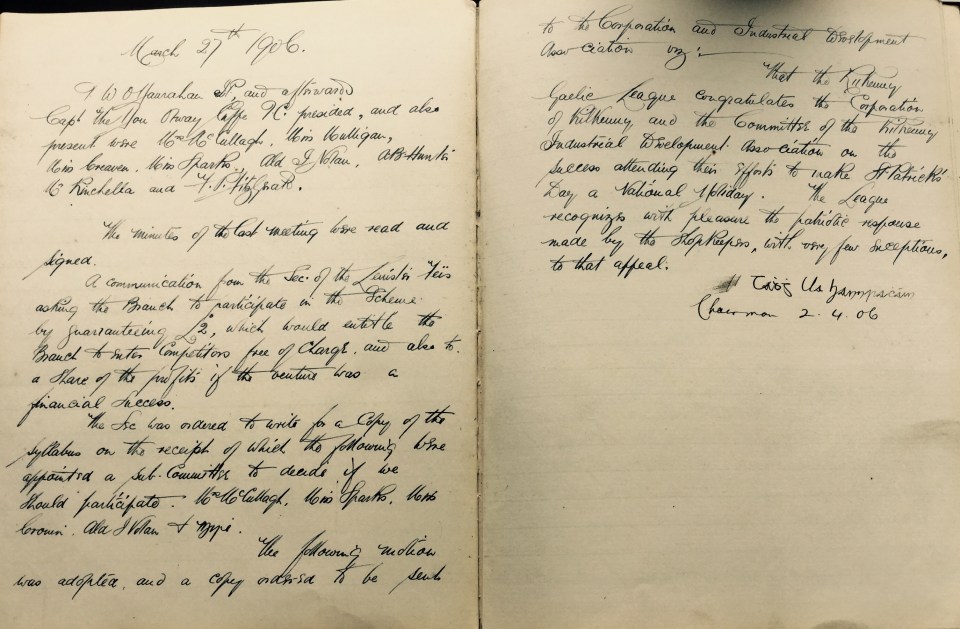 March 27th 1906.
T W O'Hanrahan JP, and afterwards
Capt the Hon Otway Cuffe P.C. presided, and also
present were Mrs McCullagh, Miss Mulligan,
Miss Greaven, Miss Sparks, Ald J Nolan
Mr Kinchella and
The minutes of the last meeting were read and
signed.
A communication from the Sec. of the Leinster Feis
asking the Branch to participate in the Scheme
by guaranteeing £2, which would entitle the
Branch to enter Competitors free of Charge, and also to
a Share of the profits if the venture was a
financial Success.
The Sec was ordered to write for a Copy of the
Syllabus on the receipt of which the following were
appointed a Sub-Committee to decide if we
Should participate. Mrs McCullagh, Miss Sparks, Miss
Cronin. Ald J Nolan &
The following motion
was adopted, and a copy ordered to be sent
to the Corporation and Industrial Development
Association viz:
"That the Kilkenny
Gaelic League congratulates the Corporation
of Kilkenny and the Committee of the Kilkenny
Industrial Development Association on the
Success attending their Efforts to make St Patrick's
Day a National Holiday. The League
recognizes with pleasure the patriotic response
made by the Shopkeepers, with very few Exceptions,
to that appeal.
Tadg Ua
Chairman 2.4.06